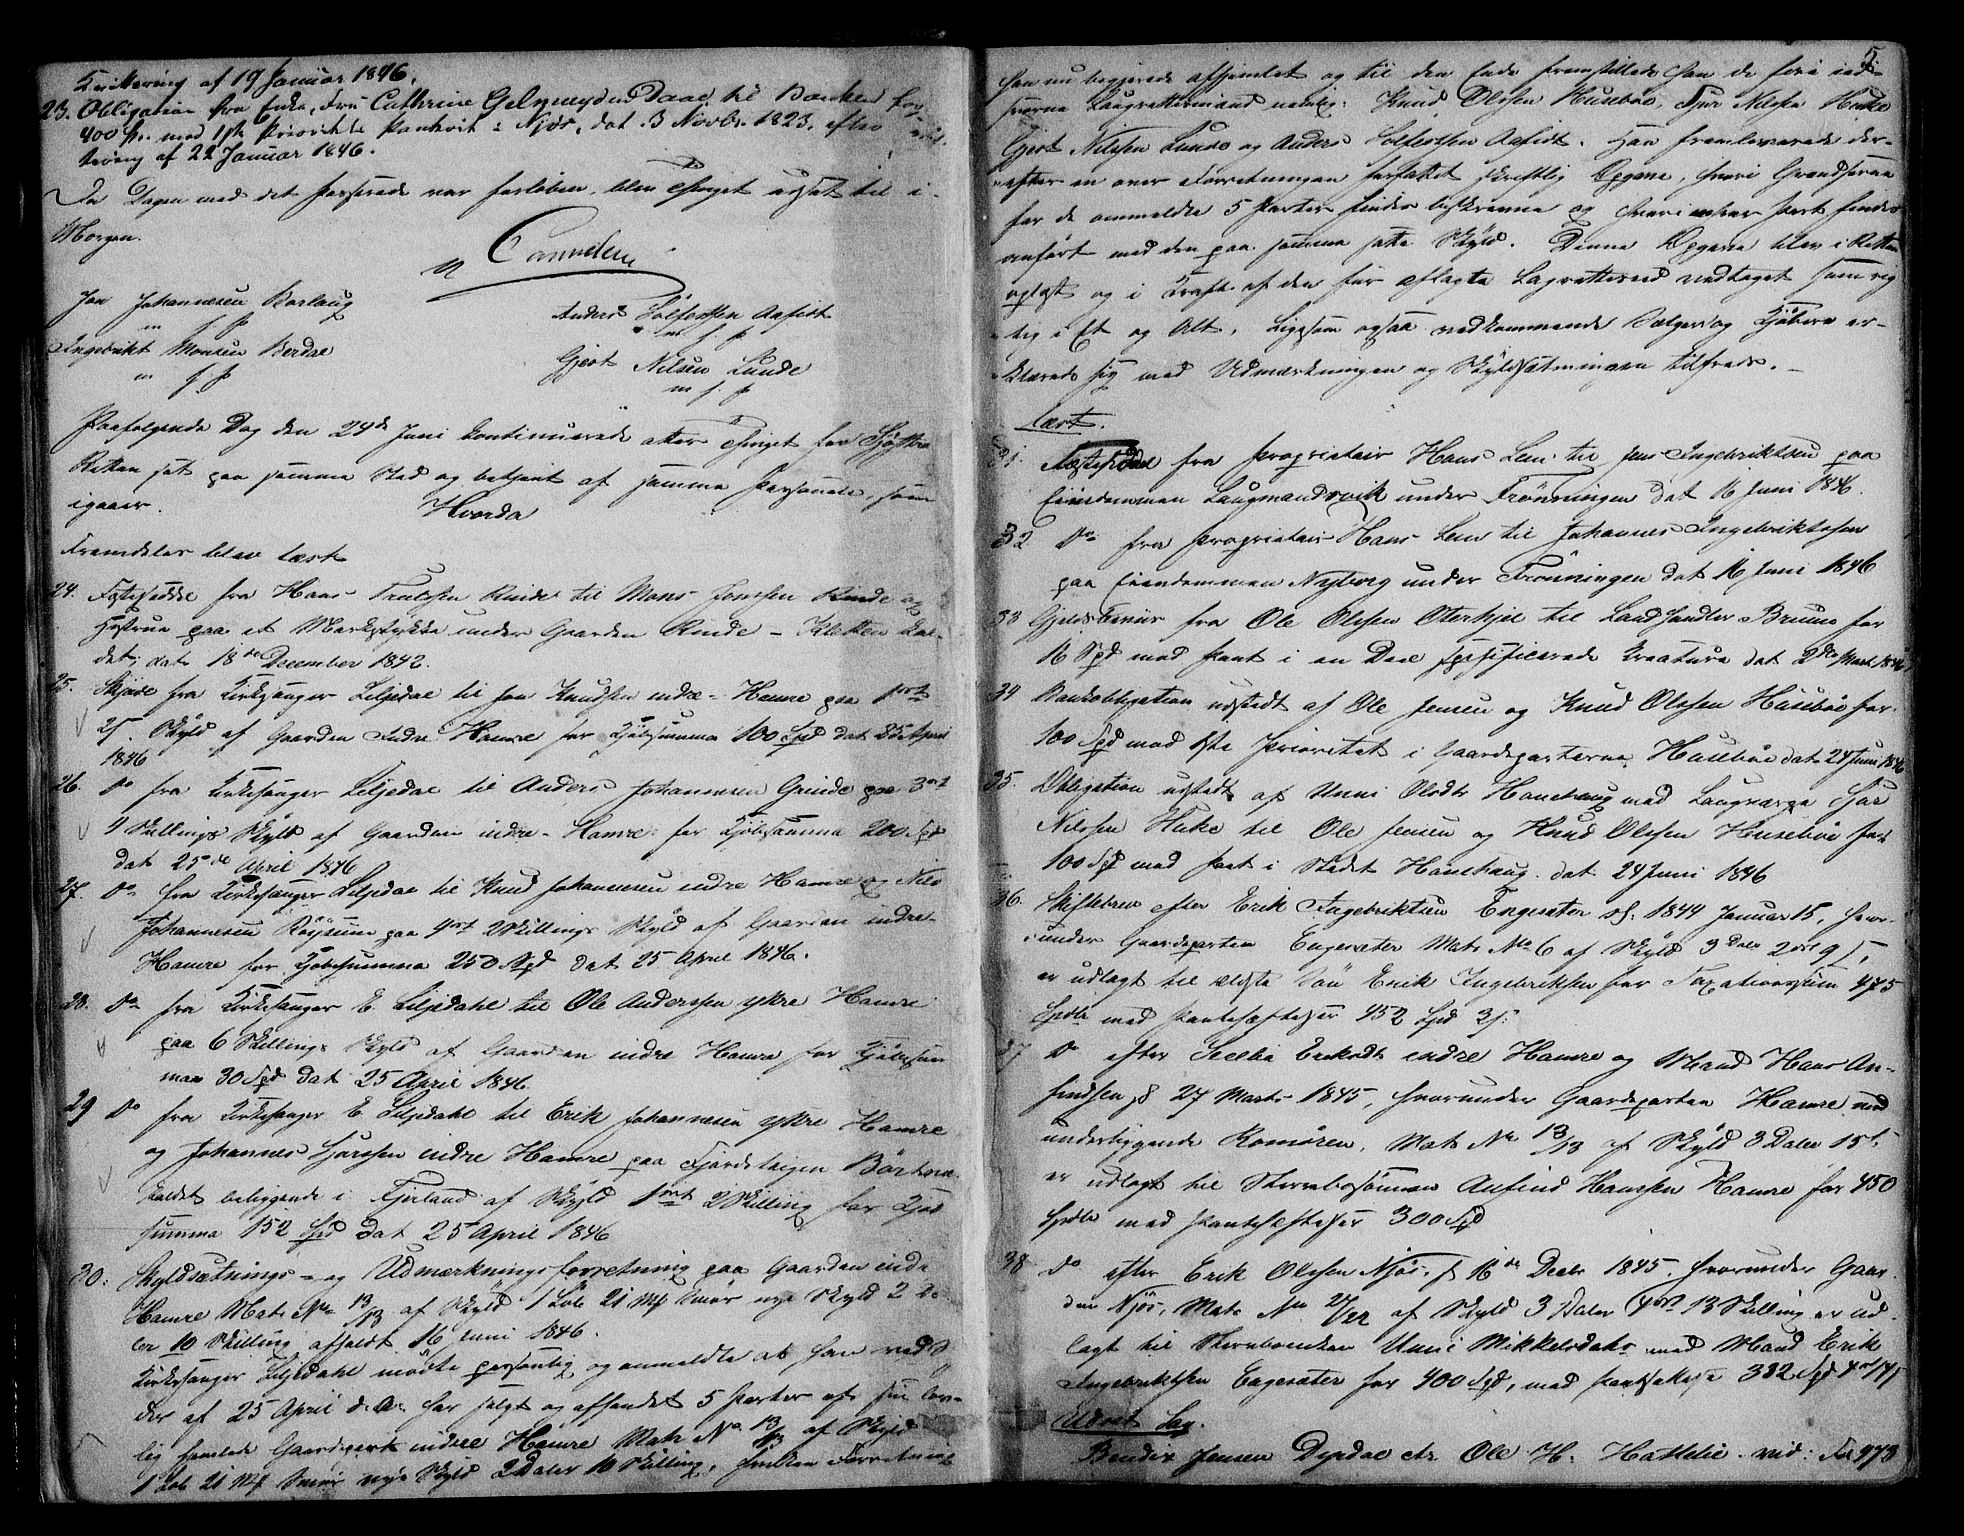 Qvittering af 19 Januar 1846.
23. Obligation fra Enke, Fru Cathrine Gelmeyden Daae til Banken for
400 Sp. med 1ste Prioritets Panteret i Njøs, dat. 3 Novbr. 1823, efter Qvit-
tering af 22 Januar 1846.
Da Dagen med det Passerede var forløben, blev Thinget udsat til i
Morgen.
Jon Johannesen Borlaug
m f P
Ingebrikt Monsen Berdae
m f P
Anders Solfessen Aafedt
m f P
Gjert Nilsen Lunde
m f P
Paafølgende Dag den 24de Juni continuerede atter Thinget for Systr.
Retten sat paa samme Sted og betjent af samme Personale, som
igaar.
Hvorda
Fremdeles blev læst
24. Fæstesedde fra Hans Trulssen Rinde til Mons Jonssen Rinde og
Hustrue paa et Markstykke under Gaarden Rinde - Kletten kal-
det; dat 18de December 1842.
25. Skjøde fra Kirkesanger Liljedae til Jon Knudsen indre - Hamre paa 1ort
2s. Skyld af Gaarden Indre Hamre for Kjøbesumma 100 Spd dat 25 April
1846
26. Do fra Kirkesanger Liljedae til Anders Johannesen Grinde paa 3ort
4 Skillings Skyld af Gaarden indre - Hamre for Kjøbesumma 200 Spd
dat 25de April 1846
27. Do fra Kirkesanger Liljedae til Knud Johannesen indre Hamre og Nils
Johannesen Røysum paa 4ort 2 Skillings Skyld af Gaarden indre
Hamre for Kjøbesumma 250 Spd dat 25 April 1846.
28. Do fra Kirkesanger E. Liljedahl til Ole Anderssen ytre Hamre
paa 6 Skillings Skyld af Gaarden indre Hamre for Kjøbesum
man 30 Spd dat 25 April 1846
29 Do fra Kirkesanger E. Liljedahl til Erik Johannesen ytre Hamre
og Johannes Sjurssen indre Hamre paa Fjordsteigen
kaldet beliggende i Fjerland af Skyld 1ort 2 Skilling for Kjøb
summa 152 Spd dat 25 April 1846
30. Skyldsætnings - og Udmærkningsforretning paa Gaarden indre
Hamre Matr No 13/13 af Skyld 1 Løb 21 Mf Smør nye Skyld 2 Da
ler 10 Skilling afholdt 16 Juni 1846.
Kirkesanger Liljedahl mødte personlig og anmeldte at han ved S
der af 25 April d. A. har solgt og afhendet 5 Parter af sin
lig havende Gaardepart indre Hamre Matr No 13/13 af Skyld
1 Løb 21 Mf Smør nye Skyld 2 Daler 10 Skilling, hvilken Forretning
5
han nu begjerede afhjemlet og til den Ende fremstillede han de fire ed-
svorne Laugrettesmænd nemlig: Knud Olssen Husebøe, Sjur Nilsen Huke
Gjert Nilssen Lunde og Anders Solfestsen Aafedt. Han fremleverede der-
efter en over Forretningen forfattet skriftlig Opgave, hvori Grændserne
for de anmeldte 5 Parter findes beskrevne og hvori enhver Part findes
anført med den paa samme satte Skyld. Denne Opgave blev i Retten
oplæst og i Kraft af den før aflagte Lagrettesed vedtaget som rig
tig i Et og Alt, ligesom ogsaa vedkommende Sælger og Kjøbere er-
klærede sig med Udmærkningen og Skyldsætningen tilfreds. -
Læst.
31. Fæstesedde fra Proprietair Hans Lem til Jens Ingebriktsen paa
Eiendommen Laugmandsvik under Frønningen dat 16 Juni 1846.
32 Do fra Proprietair Hans Lem til Johannes Ingebriktssen
paa Eiendommen Nyborg under Frønningen dat 16 Juni 1846
33 Gjeldsbeviis fra Ole Olssen Oterhjel til Landhandler Bruun for
16 Spd med Pant i en Deel spesifiserede Kreature dat 2den Marts 1846
34 Bankobligation udstedt af Ole Jensen og Knud Olssen Husebøe for
100 Spd med 1ste Prioritet i Gaardeparterne Husebøe dat 24 Juni 1846
35. Obligation udstedt af Unni Olsdtr Hanehaug med Laugværge Sjur
Nilssen Huke til Ole Jensen og Knud Olssen Husebøe for
100 Spd med Pant i Stedet Hanehaug dat 24 Juni 1846
36. Skiftebrev efter Erik Ingebriktsen Engesæter sl: 1844 Januar 15, hvor-
under Gaardeparten Engesæter Matr No 6 af Skyld 3 Daler 2ort 9s,
er udlagt til ældste Søn Erik Ingebriktsen for Taxationssum 475
Spdlr med Pantehæftelser 452 Spd 3s.
37 Do efter Eriksdtr indre Hamre og Mand Hans An-
findsen sl 27 Marts 1845, hvorunder Gaardeparten Hamre med
underliggende Romøren, Matr No 13/13 af Skyld 3 Daler 15s.
er udlagt til Stervbosønnen Anfind Hanssen Hamre for 450
Spdlr med Pantehæftelser 300 Spd
38 do efter Erik Olssen Njøs, sl 16de Decbr 1845. hvorunder Gaar
den Njøs, Matr No 21/22 af Skyld 3 Daler 4ort 13 Skilling er ud
lagt til Stervboenken Unni Mikkelsdatr med Mand Erik
Ingebriktsen Engesæter for 400 Spd, med Panthæftelse 332 Spd 4ort 14s
Udsat Sag.
Bendix Jensen Dyrdae ctr. Ole H. Hattelie. vid: Fol 473